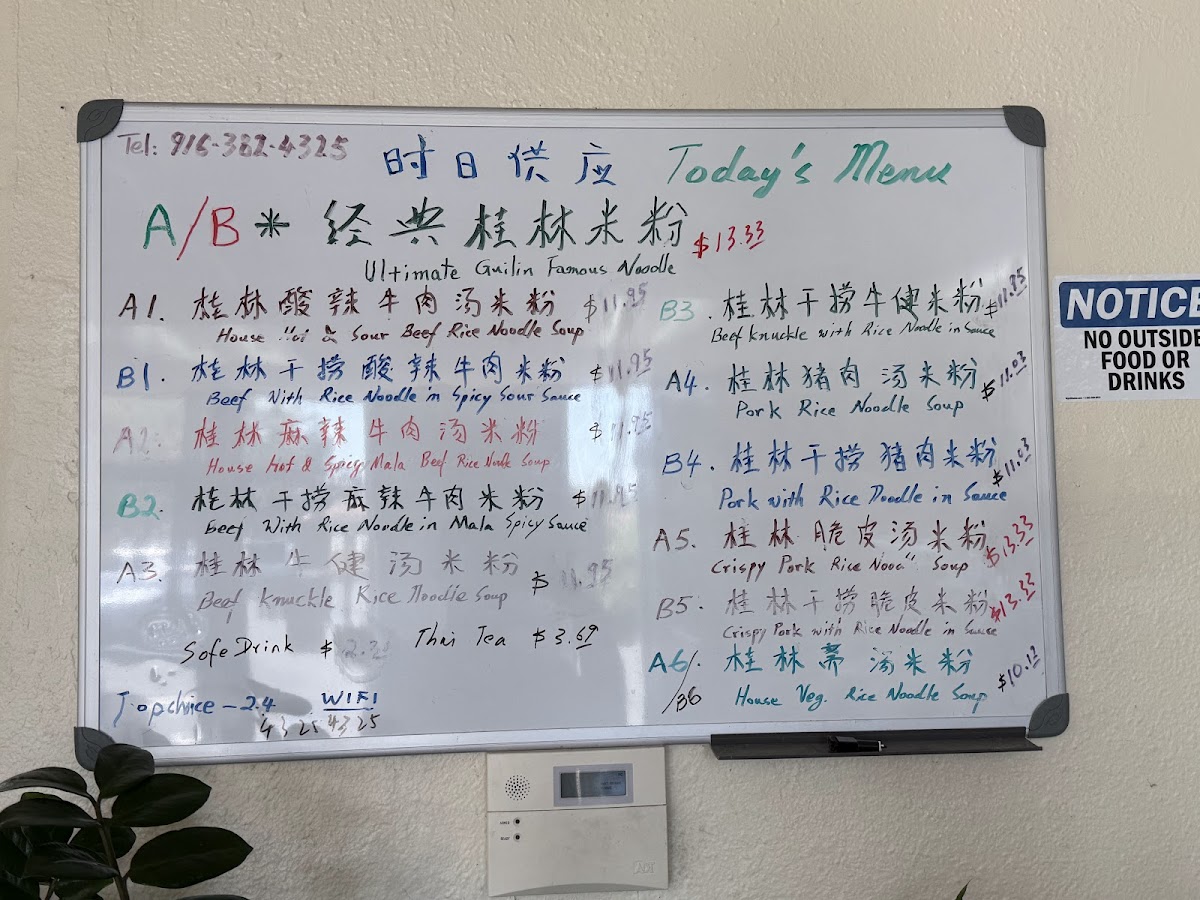 Tel: 916-382-4325
时日供应 Today's Menu
A/B* 经典桂林米粉 $13.33
Ultimate Guilin Famous Noodle
A1. 桂林酸辣牛肉汤米粉 $11.95
House Hot & Sour Beef Rice Noodle Soup
B1. 桂林干捞酸辣牛肉米粉 $11.95
Beef With Rice Noodle in Spicy Sour Sauce
A2. 桂林麻辣牛肉汤米粉 $11.95
House Hot & Spicy Mala Beef Rice Noodle Soup
B2 桂林干捞麻辣牛肉米粉 $11.95
Beef With Rice Noodle in Mala Spicy Sauce
A3. 桂林牛健汤米粉 $11.95
Beef Knuckle Rice Noodle Soup
Sofe Drink $ Thai Tea $3.69
Topchoice-2.4 WIFI
43254325
B3. 桂林干捞牛健米粉 $11.95
Beef Knuckle with Rice Noodle in Sauce
A4. 桂林猪肉汤米粉 $11.03
Pork Rice Noodle Soup
B4. 桂林干捞猪肉米粉 $11.03
Pork with Rice Noodle in Sauce
A5. 桂林脆皮汤米粉 $13.33
Crispy Pork Rice Soup
B5. 桂林干捞脆皮米粉 $13.33
Crispy Pork with Rice Noodle in Sauce
A6/. 桂林斋汤米粉 $10.12
/B6 House Veg. Rice Noodle Soup
NOTICE
NO OUTSIDE
FOOD OR
DRINKS